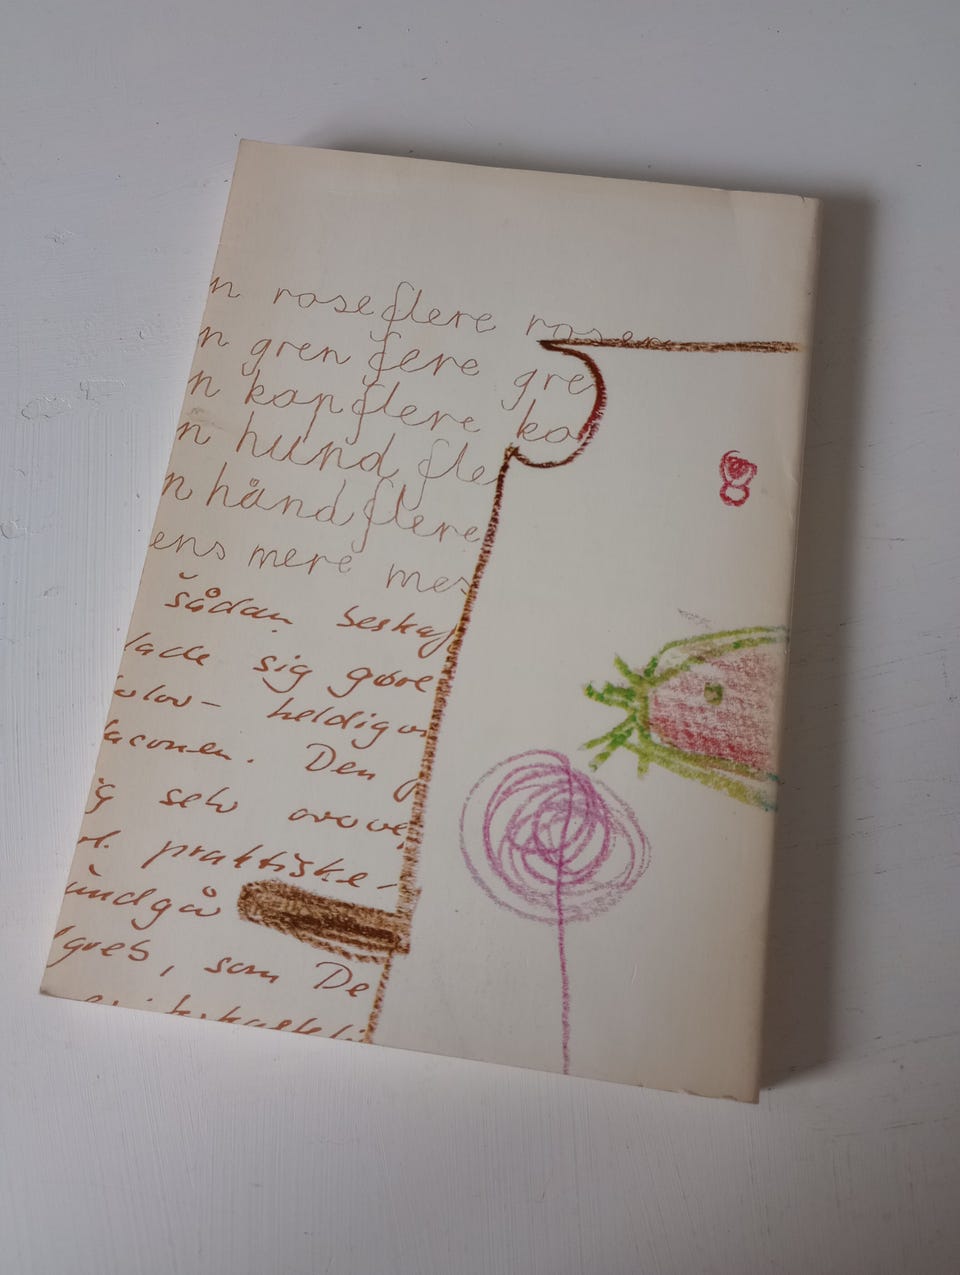 n rose flere rosen
n gren fere gre
n kop flere ko
n hund fle
n hånd flere
ens mere mes
sådan beskaf
lade sig gøre
vlov- heldigv
laconen. Den
ig selv
vl. praktiske-
undgå
greb, som De